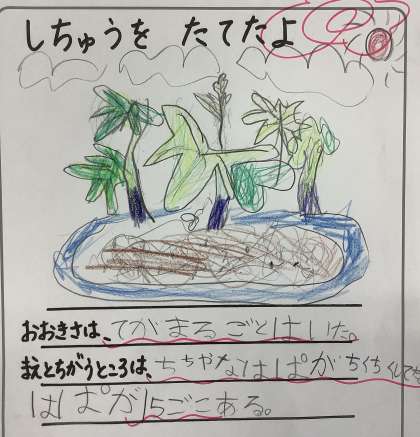 しちゅうを たてたよ
おおきさは、てがまるごとはいた。
まえとちがうところは、ちちゃなはぱがちくちくしてち
はぱが15ごこある。